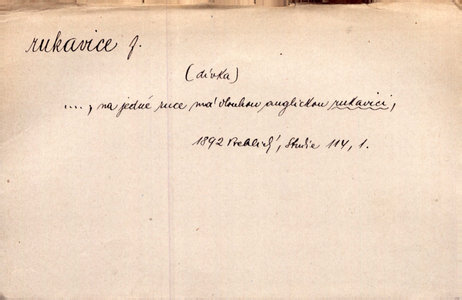 rukavice f.
(dívka)
...., na jedné ruce má dlouhou anglickou rukavici,
1892 Vrchlický, Studie 114, 1.